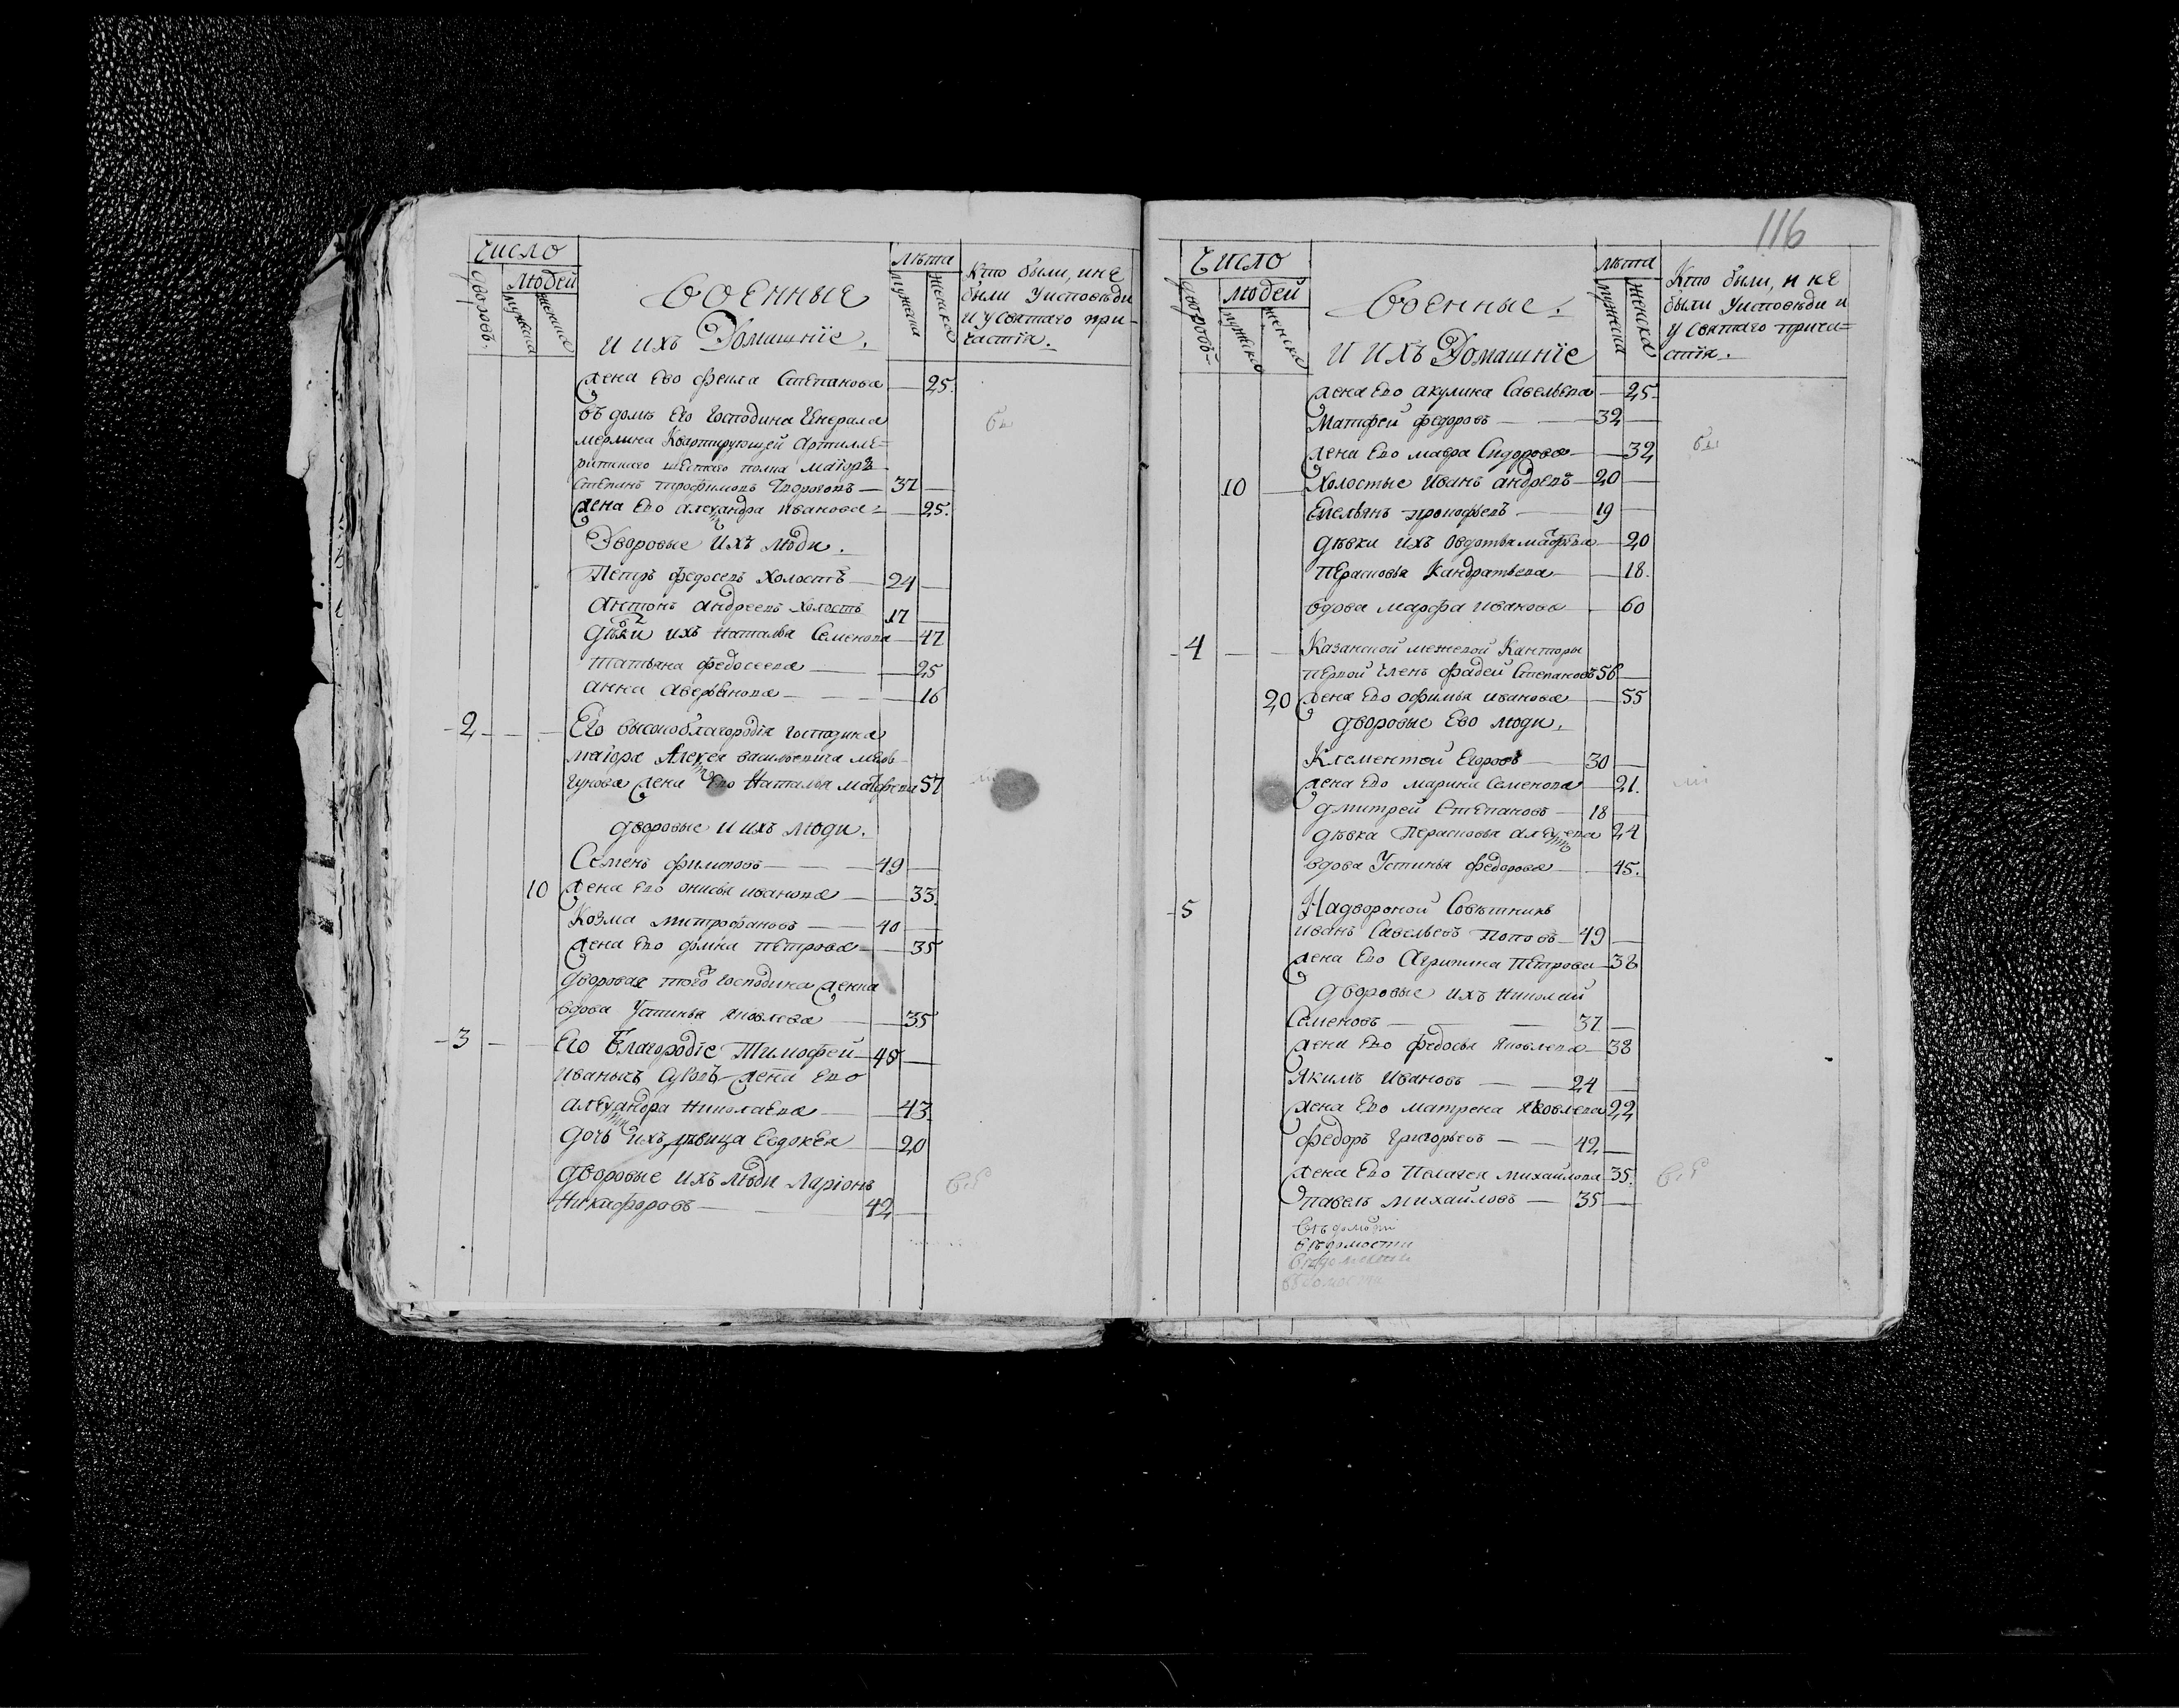 Число
Людей
Дворовъ.
мужеска
женска
Военные
и ихъ Домашнїе.
Лѣта
мужеска
женска
Кто были, и не
были Уисповѣди
и у Святаго при-
частїя.
жена Ево феила Степанова 25.
въ домѣ Его Господина Генерала
мерлина Квартирующей Артилле-
Степанъ трофимовъ 37
жена Ево Алеѯандра иванова 25.
Дворовые Ихъ люди.
Петръ федосевъ холостъ 24
Антонъ андреевъ холостъ 17
Дѣвки ихъ Наталья Семенова 47
татьяна федосеева 25
анна аверьянова 16
2 Его высокоблагородїя господина
маїора Алеѯея васильевича
жена Ево Наталья матфевна 57
дворовые и ихъ люди.
Семенъ филиповъ 49
10 жена Ево анисья иванова 33.
Козма митрофановъ 40
жена Ево домна петрова 35
дворовая того господина женка
вдова Устинья яковлева 35
3 Его Благородїе Тимофей 45
Иванычъ жена Ево
алеѯандра николаевна 43.
дочь ихъ девица Евдокея 20
дворовые ихъ люди Ларїонъ
Никифоровъ 42
116
Число
Людей
Дворовъ
мужеска
женска
Военные.
и ихъ Домашнїе
лѣта
мужеска
женска
Кто были, и не
были Уисповѣди и
у Святаго прича-
стїя.
жена Ево акулина Савельева 25.
Матфей федоровъ 32
жена Ево мавра Сидорова 32
10 Холостые Иванъ андревъ 20
Емельянъ прокофьевъ 19
дѣвки ихъ Овдотья матфѣва 20
Перасковья Кандратьева 18.
вдова марфа иванова 60
4 Казанской межевой Канторы
первой членъ фадей Степановъ 56
20 жена Ево офимья иванова 55
дворовые Ево люди.
Клементей Егоровъ 30
жена Ево марина Семенова 21.
дмитрей Степановъ 18
дѣвка Перасковья алеѯева 24
вдова Устинья федорова 45.
5 Надворной Совѣтникъ
иванъ Савельевъ Поповъ 49
жена Ево Агрипина Петрова 38
дворовые ихъ Николай
Семеновъ 37
жена Ево федосья яковлева 38
Якимъ Ивановъ 24
жена Ево матрена яковлева 22
федоръ григорьевъ 42
жена Ево Пелагея михайлова 35.
Павелъ михайловъ 35
ведомости